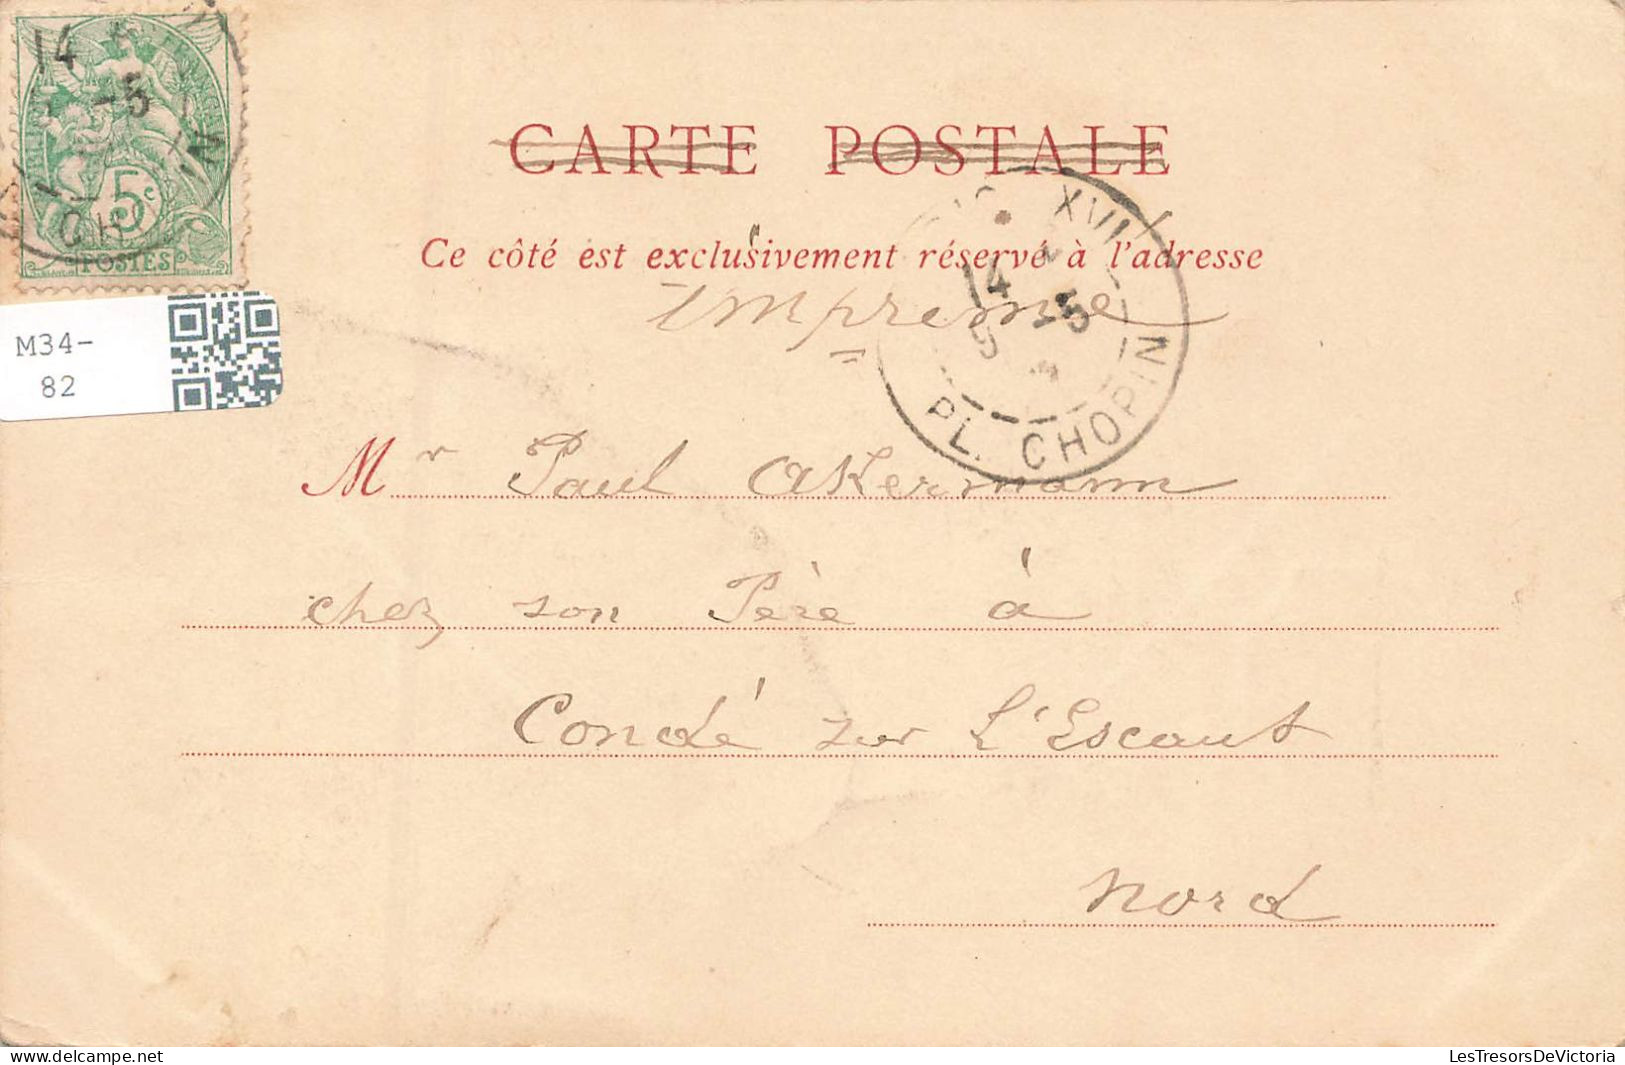 14
-5
CH
5c
POSTES
M34-
82
CARTE POSTALE
Ce côté est exclusivement réservé à l'adresse
Imprimé
XVI
14 -5
PL. CHOPIN
Mr Paul Akermann
chez son Père à
Condé sur L'Escaut
Nord
LesTresorsDeVictoria